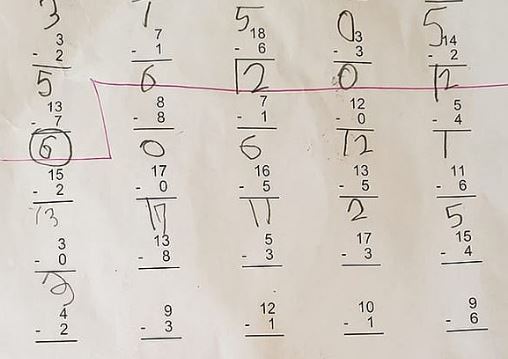 3 1 5 0 5
3 7 18 3 14
- 2 - 1 - 6 - 3 - 2
5 6 12 0 12
13 8 7 12 5
- 7 - 8 - 1 - 0 - 4
6 0 6 12 1
15 17 16 13 11
- 2 - 0 - 5 - 5 - 6
13 17 11 2 5
3 13 5 17 15
- 0 - 8 - 3 - 3 - 4
3
4 9 12 10 9
- 2 - 3 - 1 - 1 - 6